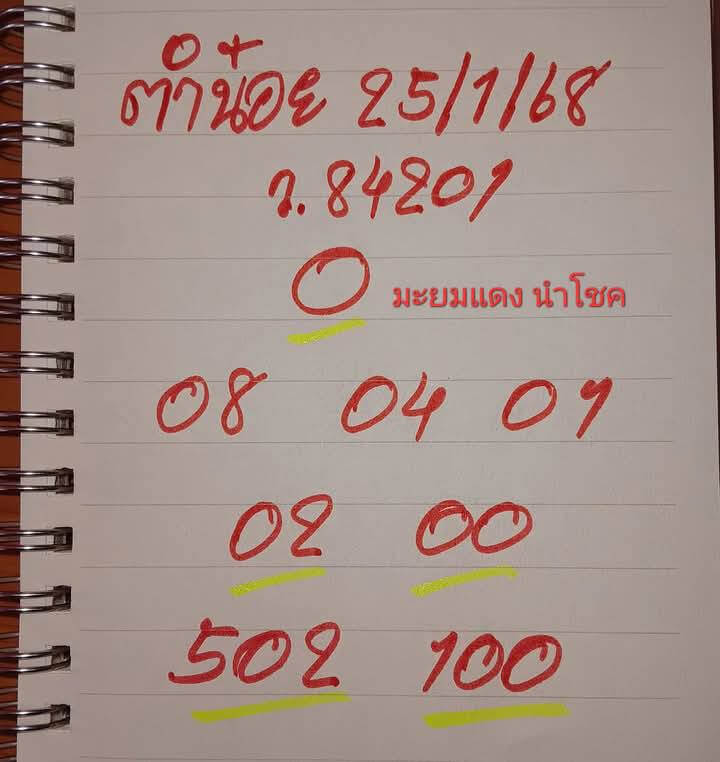 ตำน้อย 25/1/68
ว.84201
0
มะยมแดง นำโชค
08 04 01
02 00
502 100